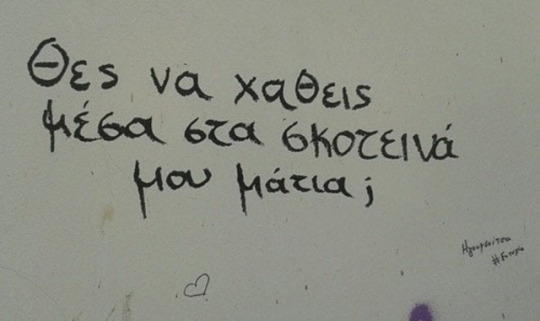 Θες να χαθεις
μέσα στα σκοτεινά
μου μάτια;